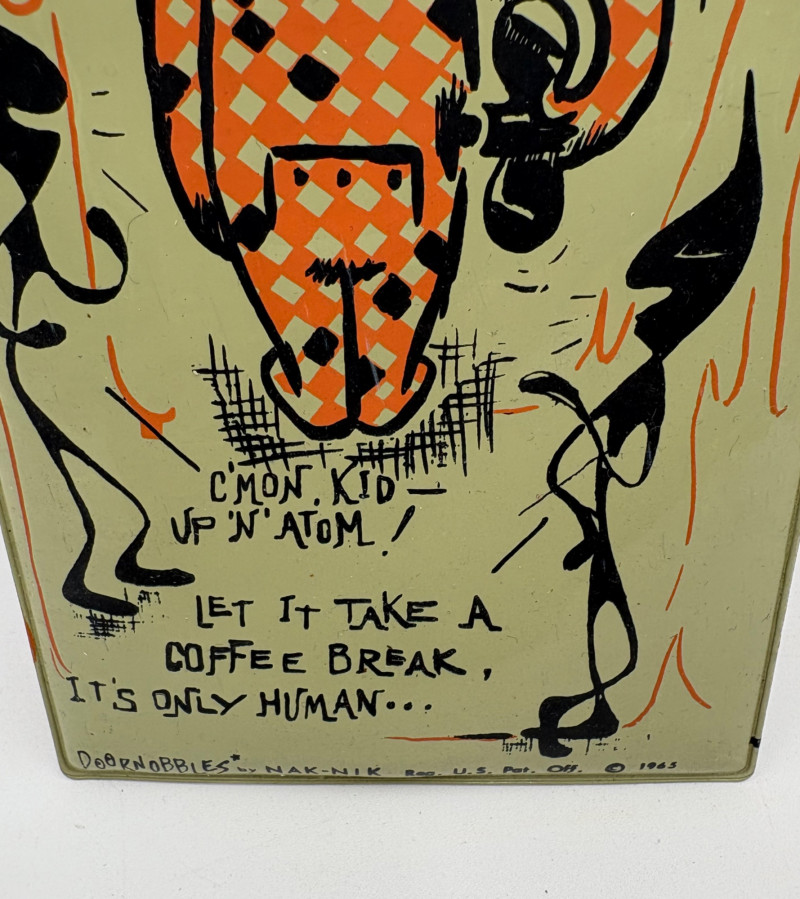 C'MON, KID —
UP 'N' ATOM!
LET IT TAKE A
COFFEE BREAK,
IT'S ONLY HUMAN...
DOORNOBBLES* by NAK-NIK Reg. U.S. Pat. Off. © 1965